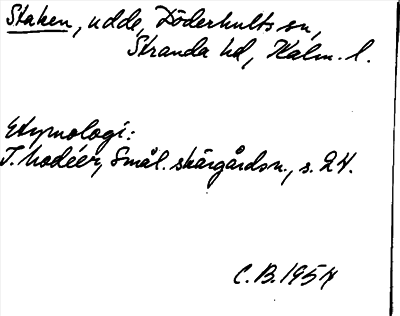 Staken, udde, Döderhults sn,
Stranda hd, Kalm. l.
Etymologi:
I. Modéer, Smål. skärgårdsn., s. 24.
C.B. 1957